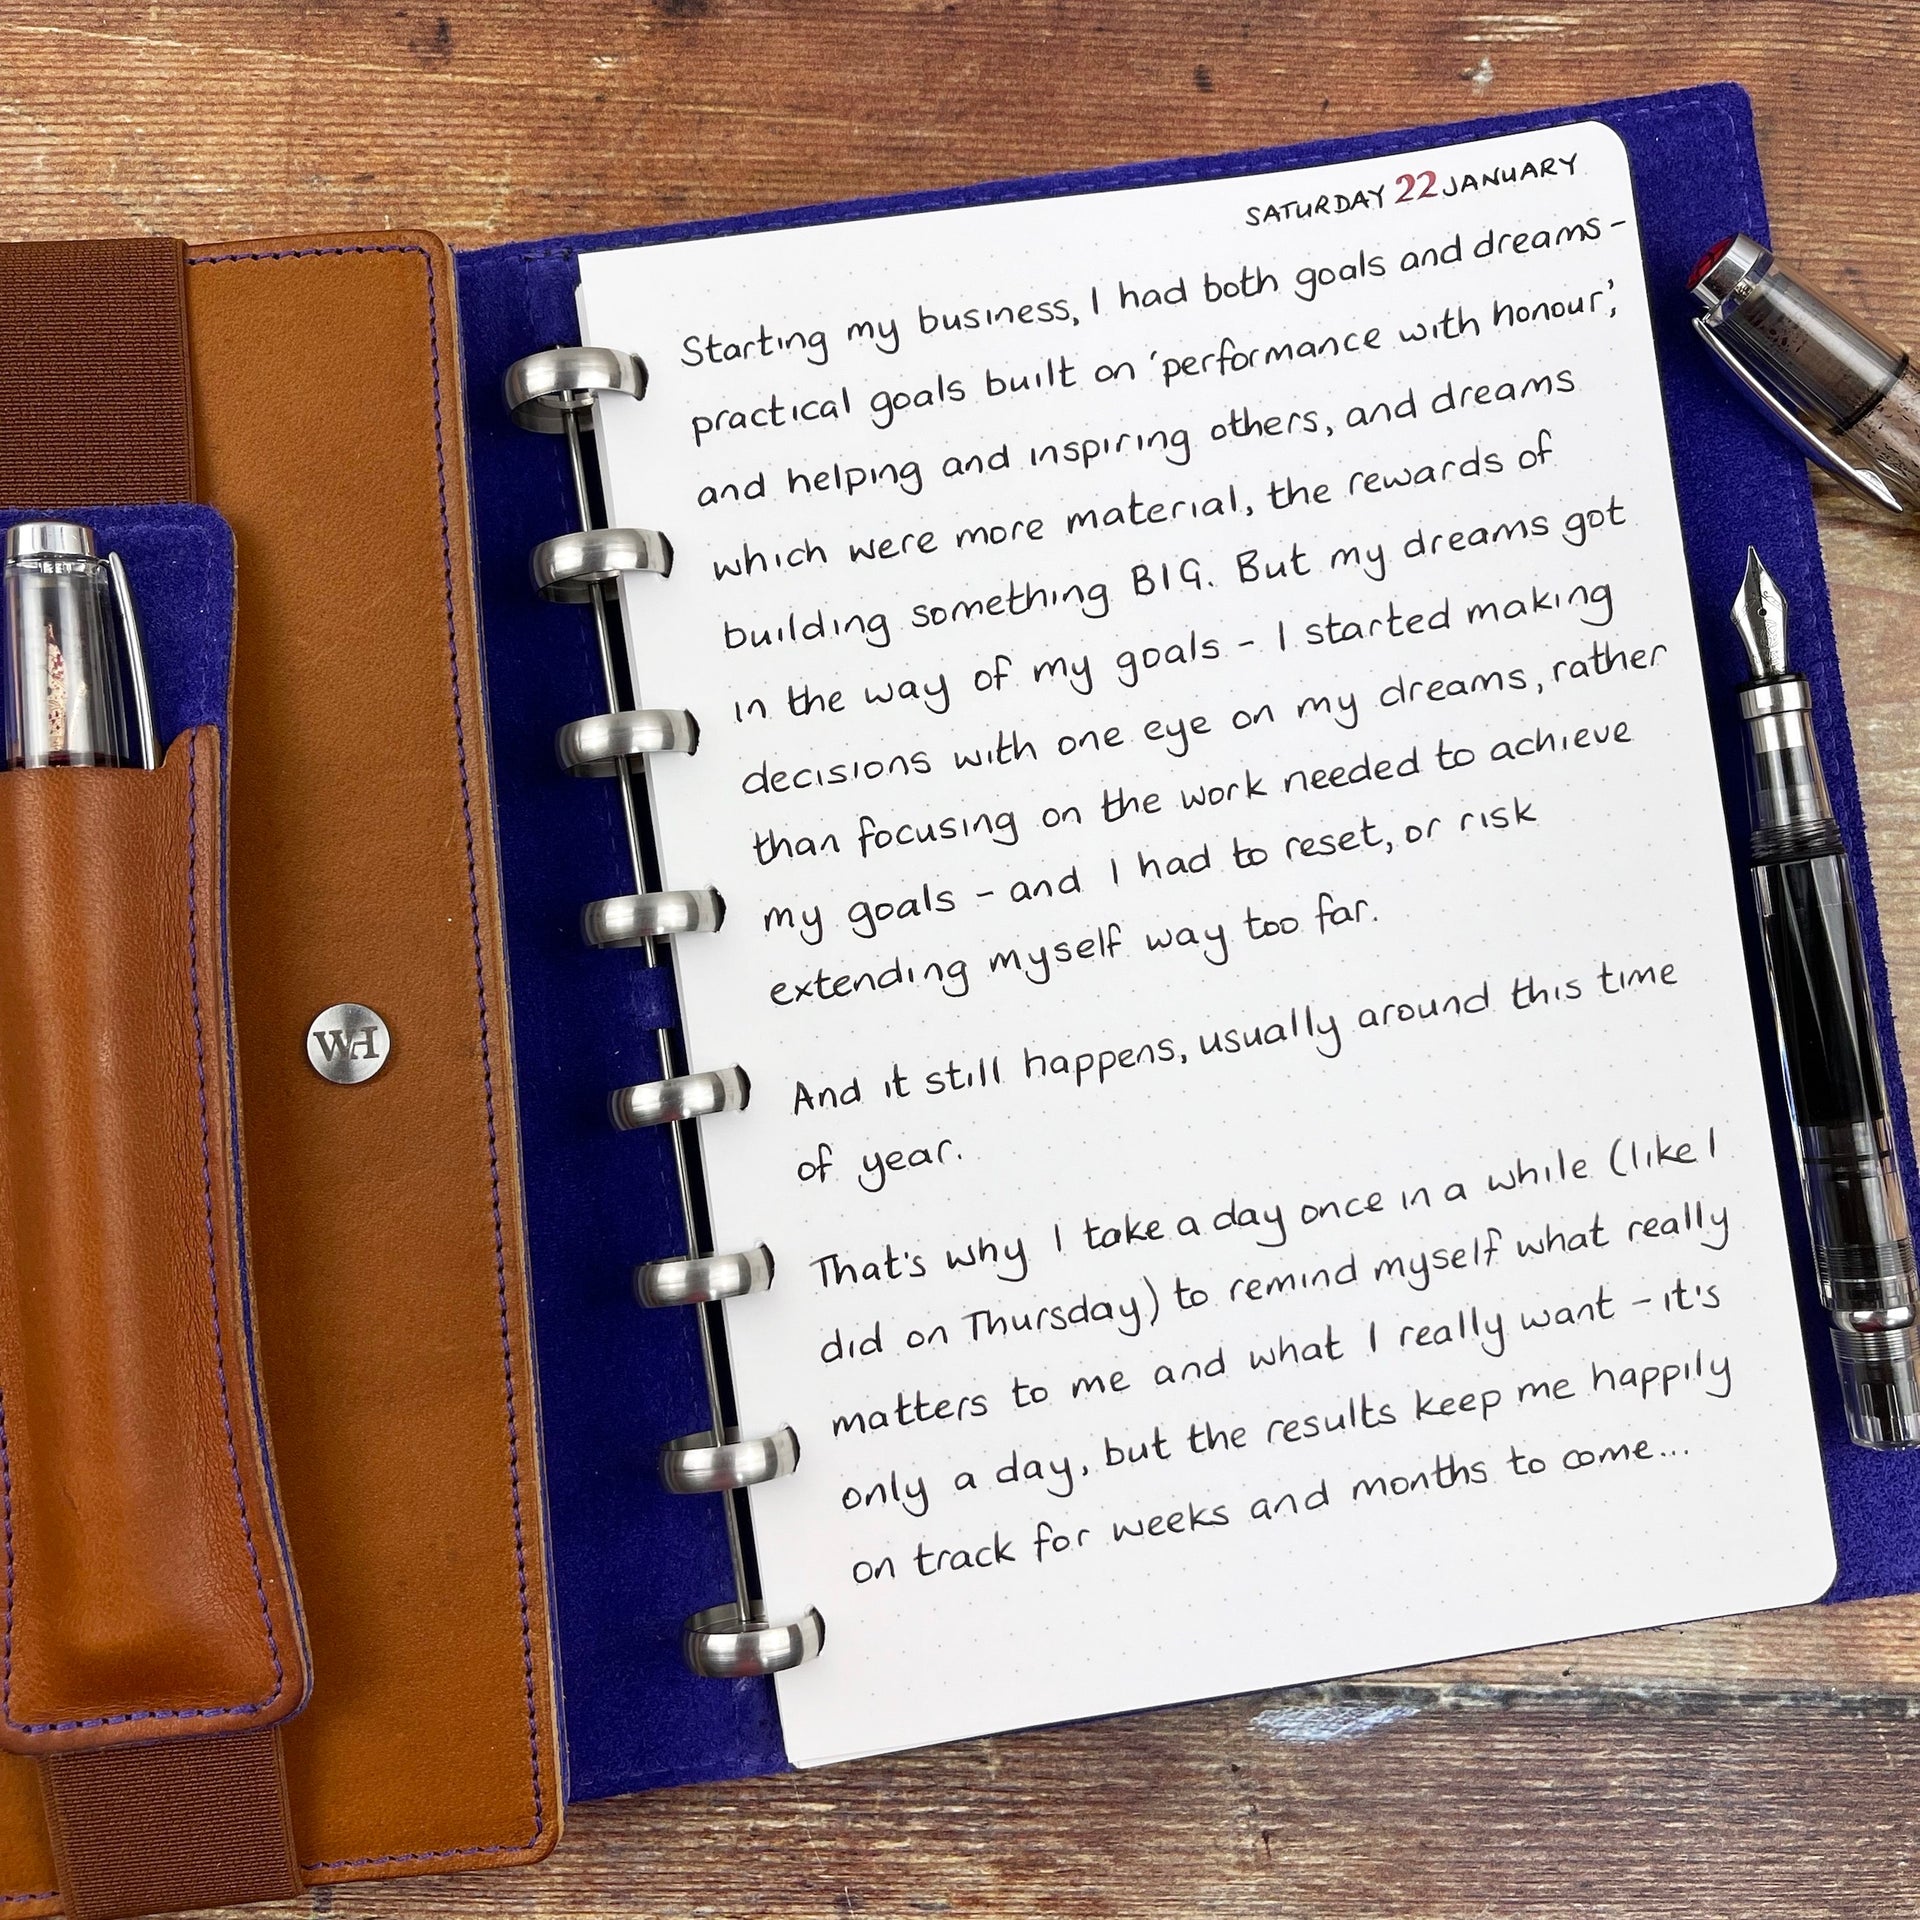 SATURDAY 22 JANUARY
Starting my business, I had both goals and dreams -
practical goals built on 'performance with honour',
and helping and inspiring others, and dreams
which were more material, the rewards of
building something BIG. But my dreams got
in the way of my goals - I started making
decisions with one eye on my dreams, rather
than focusing on the work needed to achieve
my goals - and I had to reset, or risk
extending myself way too far.
And it still happens, usually around this time
of year.
That's why I take a day once in a while (like I
did on Thursday) to remind myself what really
matters to me and what I really want - it's
only a day, but the results keep me happily
on track for weeks and months to come...
WH